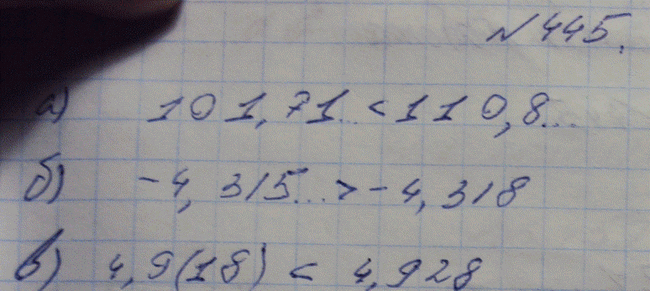 № 445.
а) 101,71... < 110,8...
б) -4,315... > -4,318
в) 4,9(18) < 4,928